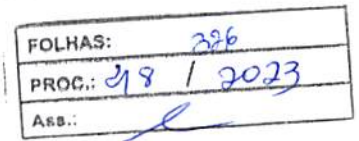 FOLHAS: 326
PROC.: 218 / 2023
Ass.: